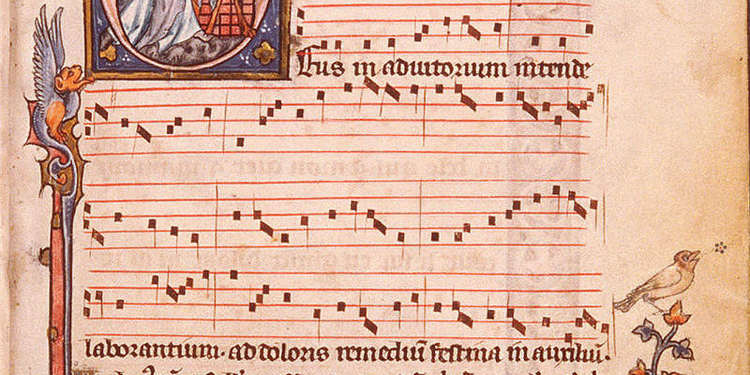 Eus in adiutorium intende
laborantium. ad doloris remediū festina in auxiliū.